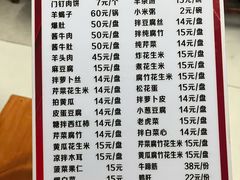 门钉肉饼 7元/个
羊蝎子 60元/锅
爆肚 50元/盘
酱牛肉 50元/盘
酱牛肚 50元/盘
羊头肉 45元/盘
麻豆腐 15元/盘
芹菜花生米 15元/盘
拌萝卜丝 14元/盘
拍黄瓜 14元/盘
皮蛋豆腐 14元/盘
糖拌西红柿 14元/盘
芹菜腐竹 15元/盘
黄瓜腐竹 15元/盘
凉拌木耳 15元/盘
菠菜果仁 15元
小米粥 2元/碗
拌豆腐丝 14元/盘
拌腐竹 15元/盘
纯芹菜 14元/盘
炸花生米 15元/盘
煮花生米 15元/盘
腐竹花生米 15元/盘
松花蛋 15元/盘
拌萝卜皮 14元/盘
小葱豆腐 14元/盘
老虎菜 15元/盘
拌白菜心 14元/盘
芹菜花生米 15元/盘
黄瓜花生米 15元/盘
牛蹄筋 38元/份
鸭肝 22元/份